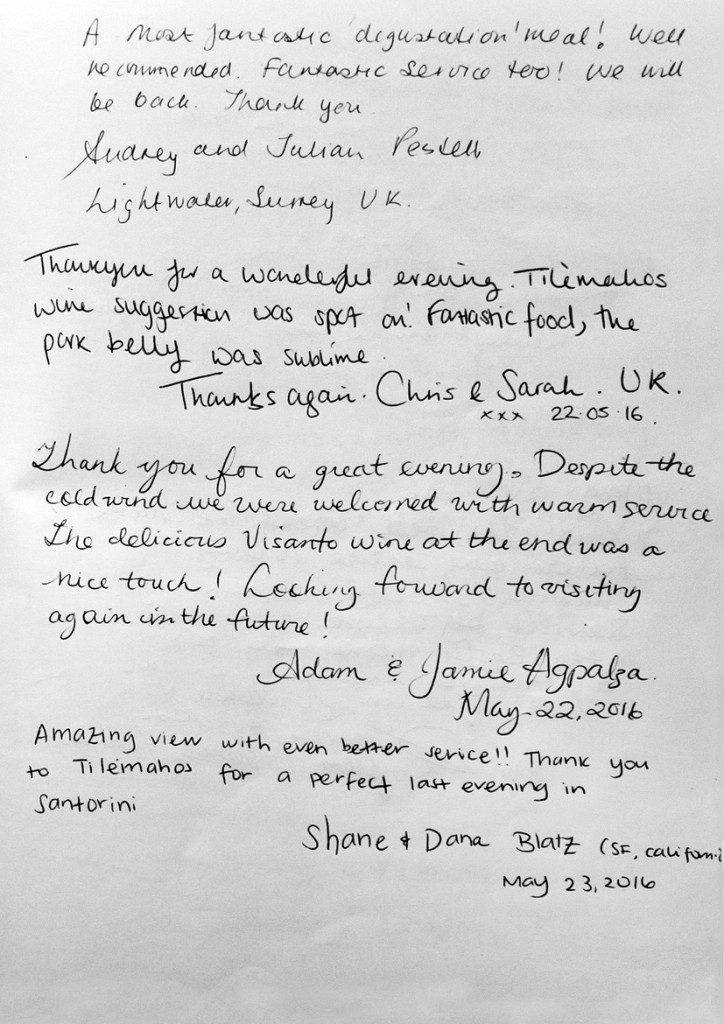 A most fantastic 'degustation' meal! Well
recommended. Fantastic service too! We will
be back. Thank you.
Audrey and Julian Pestell
Lightwater, Surrey UK.
Thankyou for a wonderful evening. Tilèmahos
wine suggestion was spot on! Fantastic food, the
pork belly was sublime.
Thanks again. Chris & Sarah. UK.
xxx 22.05.16.
Thank you for a great evening. Despite the
cold wind we were welcomed with warm service
The delicious Visanto wine at the end was a
nice touch! Looking forward to visiting
again in the future!
Adam & Jamie Agpalza.
May 22, 2016
Amazing view with even better service!! Thank you
to Tilémahos for a perfect last evening in
Santorini
Shane & Dana Blatz (SF, californi
May 23, 2016